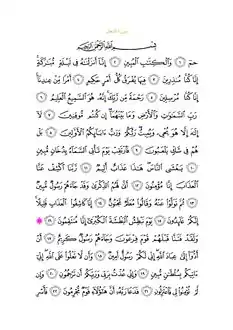 سورة الدخان
بِسْمِ ٱللَّهِ ٱلرَّحْمَٰنِ ٱلرَّحِيمِ
حمٓ ١ وَٱلْكِتَٰبِ ٱلْمُبِينِ ٢ إِنَّآ أَنزَلْنَٰهُ فِى لَيْلَةٍ مُّبَٰرَكَةٍ
إِنَّا كُنَّا مُنذِرِينَ ٣ فِيهَا يُفْرَقُ كُلُّ أَمْرٍ حَكِيمٍ ٤ أَمْرًا مِّنْ عِندِنَآ
إِنَّا كُنَّا مُرْسِلِينَ ٥ رَحْمَةً مِّن رَّبِّكَ إِنَّهُۥ هُوَ ٱلسَّمِيعُ ٱلْعَلِيمُ ٦
رَبِّ ٱلسَّمَٰوَٰتِ وَٱلْأَرْضِ وَمَا بَيْنَهُمَآ إِن كُنتُم مُّوقِنِينَ ٧ لَآ
إِلَٰهَ إِلَّا هُوَ يُحْىِۦ وَيُمِيتُ رَبُّكُمْ وَرَبُّ ءَابَآئِكُمُ ٱلْأَوَّلِينَ ٨ بَلْ
هُمْ فِى شَكٍّ يَلْعَبُونَ ٩ فَٱرْتَقِبْ يَوْمَ تَأْتِى ٱلسَّمَآءُ بِدُخَانٍ مُّبِينٍ
١٠ يَغْشَى ٱلنَّاسَ هَٰذَا عَذَابٌ أَلِيمٌ ١١ رَّبَّنَا ٱكْشِفْ عَنَّا
ٱلْعَذَابَ إِنَّا مُؤْمِنُونَ ١٢ أَنَّىٰ لَهُمُ ٱلذِّكْرَىٰ وَقَدْ جَآءَهُمْ رَسُولٌ مُّبِينٌ
١٣ ثُمَّ تَوَلَّوْا۟ عَنْهُ وَقَالُوا۟ مُعَلَّمٌ مَّجْنُونٌ ١٤ إِنَّا كَاشِفُوا۟ ٱلْعَذَابِ قَلِيلًا
إِنَّكُمْ عَآئِدُونَ ١٥ يَوْمَ نَبْطِشُ ٱلْبَطْشَةَ ٱلْكُبْرَىٰٓ إِنَّا مُنتَقِمُونَ ١٦
وَلَقَدْ فَتَنَّا قَبْلَهُمْ قَوْمَ فِرْعَوْنَ وَجَآءَهُمْ رَسُولٌ كَرِيمٌ ١٧ أَنْ
أَدُّوٓا۟ إِلَىَّ عِبَادَ ٱللَّهِ إِنِّى لَكُمْ رَسُولٌ أَمِينٌ ١٨ وَأَن لَّا تَعْلُوا۟ عَلَى ٱللَّهِ إِنِّىٓ
ءَاتِيكُم بِسُلْطَٰنٍ مُّبِينٍ ١٩ وَإِنِّى عُذْتُ بِرَبِّى وَرَبِّكُمْ أَن تَرْجُمُونِ ٢٠ وَإِن
لَّمْ تُؤْمِنُوا۟ لِى فَٱعْتَزِلُونِ ٢١ فَدَعَا رَبَّهُۥٓ أَنَّ هَٰٓؤُلَآءِ قَوْمٌ مُّجْرِمُونَ ٢٢ فَأَسْرِ